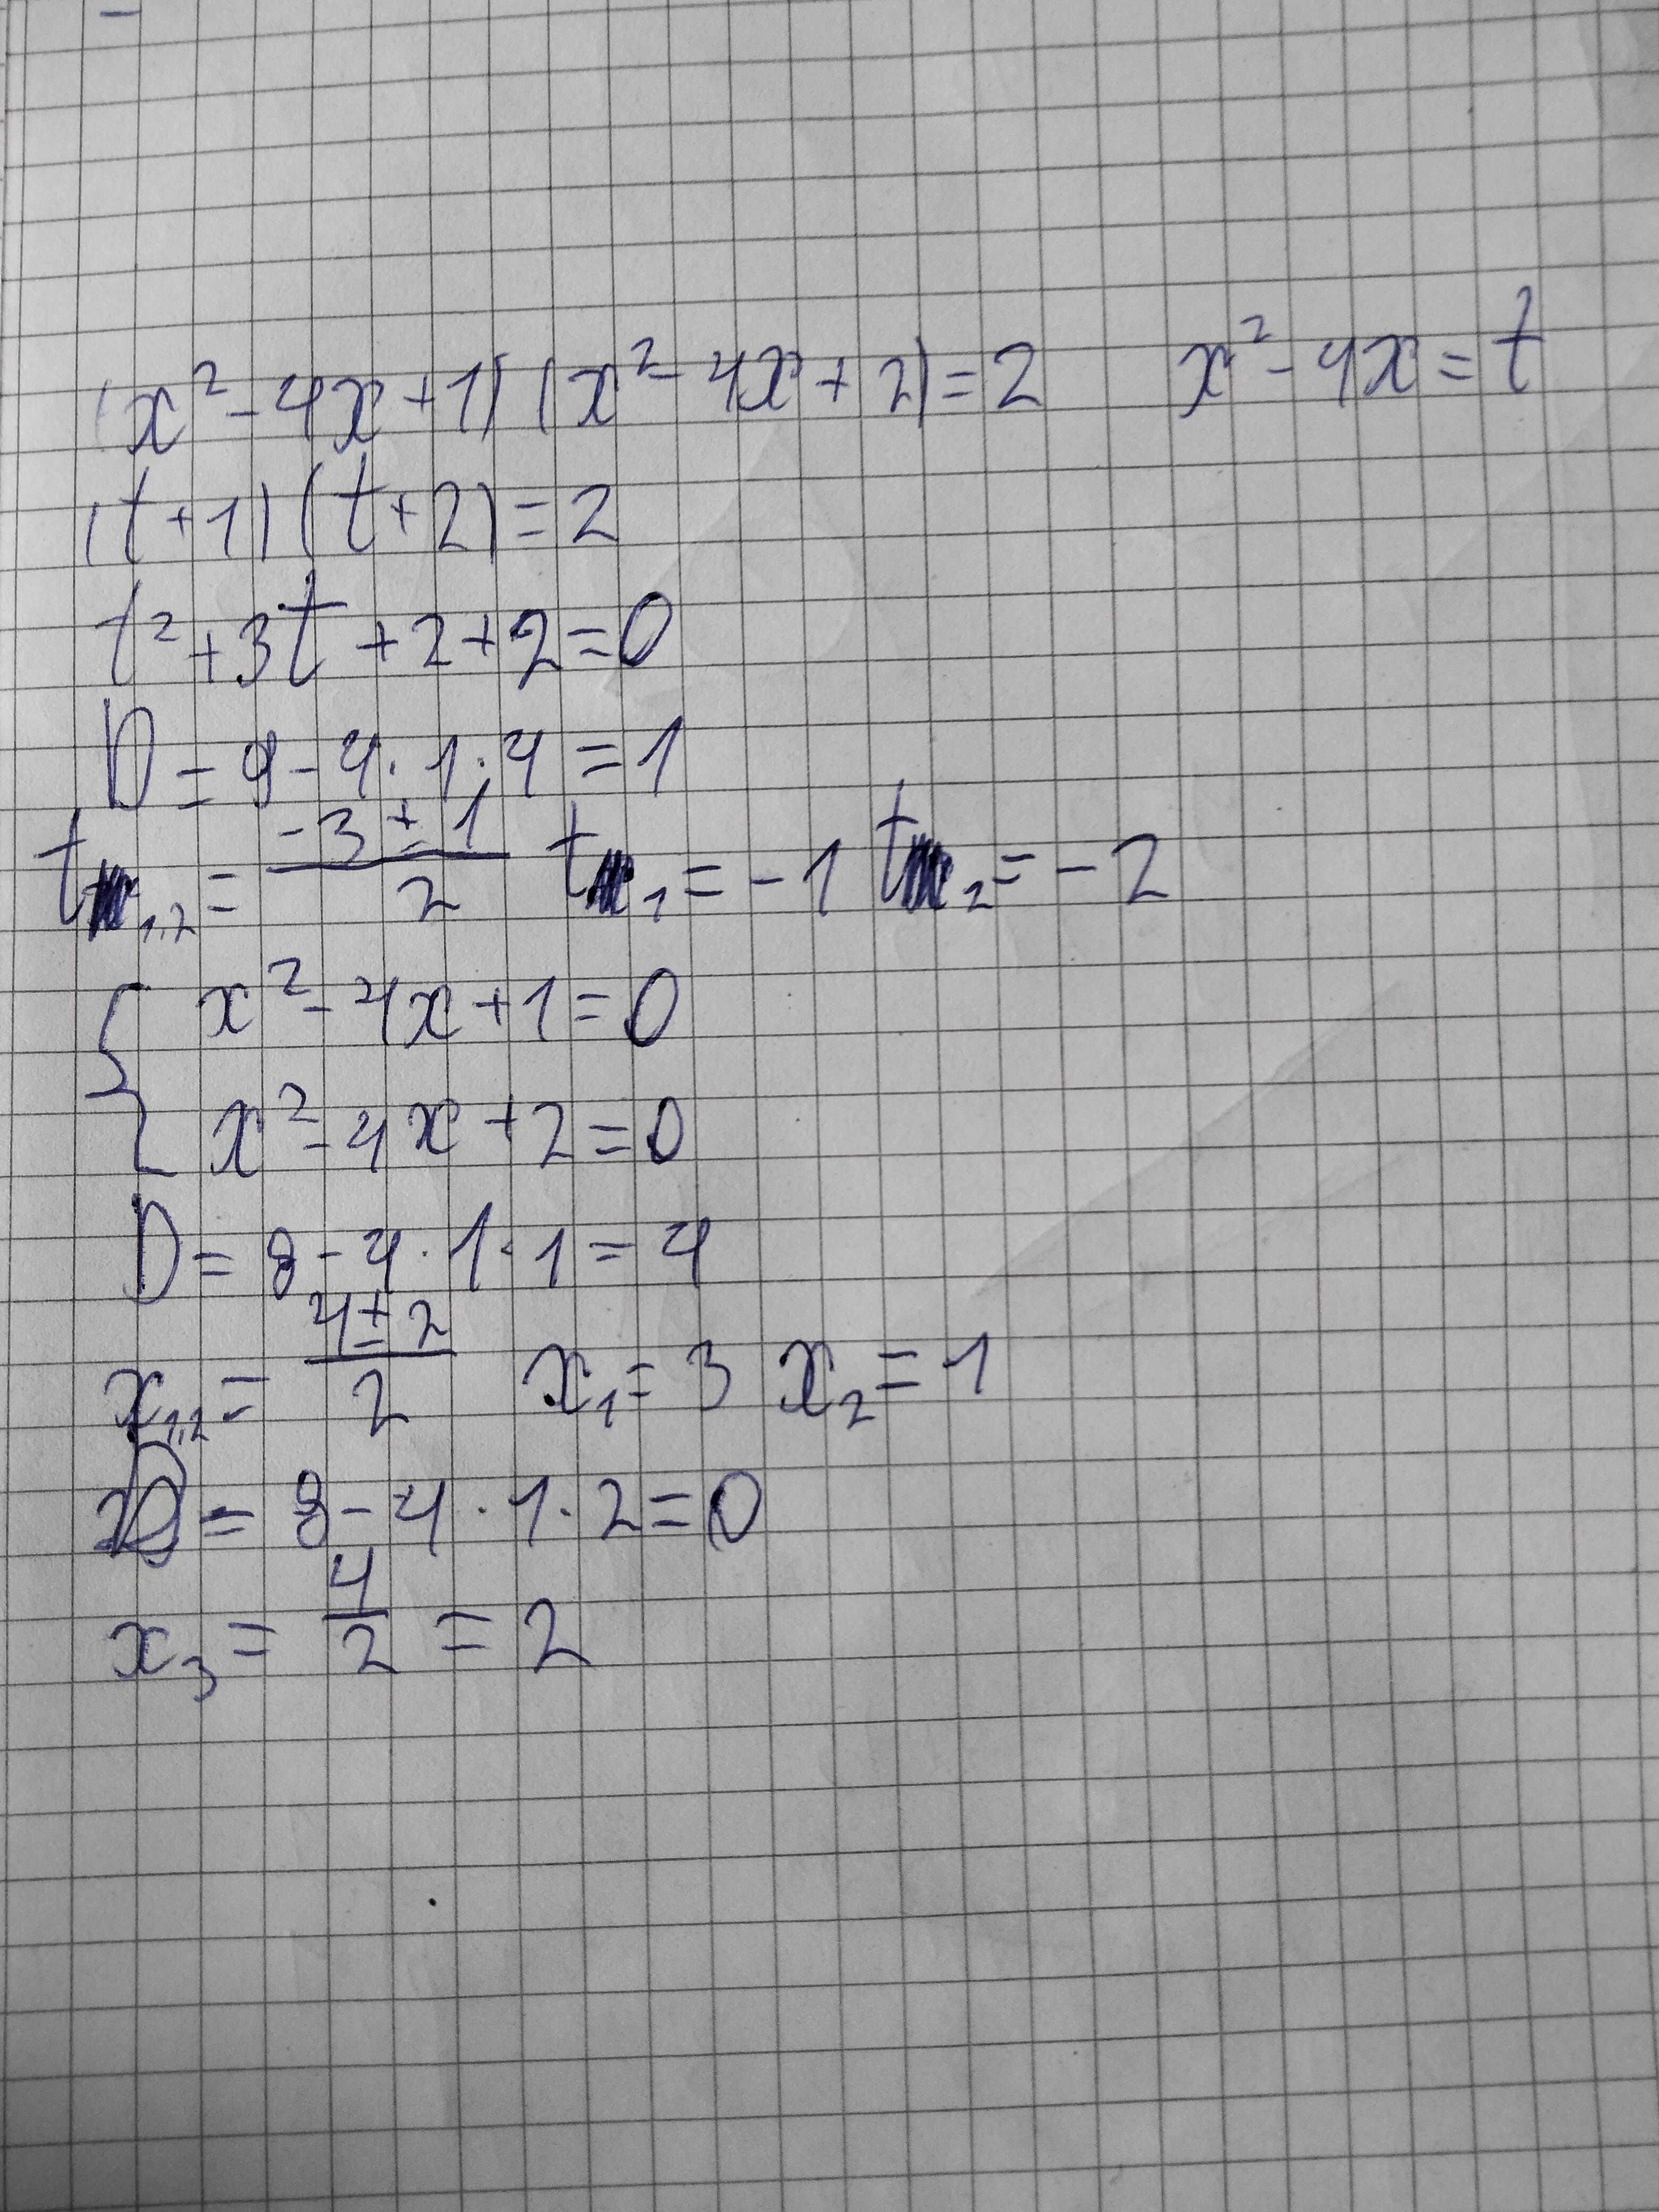 (x² - 4x + 1) (x² - 4x + 2) = 2 x² - 4x = t
(t + 1) (t + 2) = 2
t² + 3t + 2 + 2 = 0
D = 9 - 4 · 1 · 4 = 1
t₁,₂ = (-3 ± 1)/2 t₁ = -1 t₂ = -2
{ x² - 4x + 1 = 0
x² - 4x + 2 = 0
D = 8 - 4 · 1 · 1 = 4
x₁,₂ = (4 ± 2)/2 x₁ = 3 x₂ = 1
D = 8 - 4 · 1 · 2 = 0
x₃ = 4/2 = 2